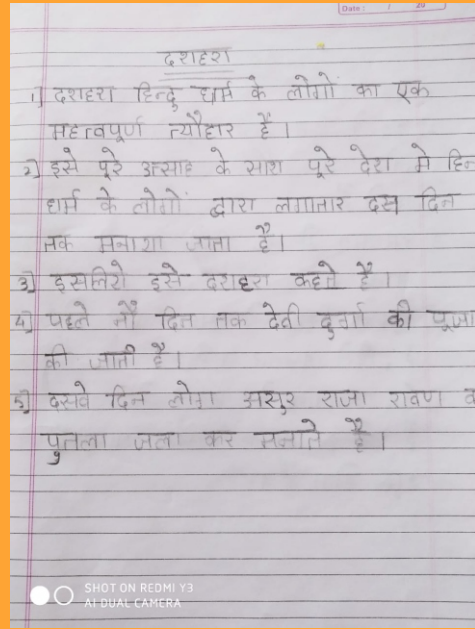 Date : / 20
दशहरा
1] दशहरा हिन्दु धर्म के लोगों का एक
महत्वपूर्ण त्यौहार है।
2] इसे पूरे उत्साह के साथ पूरे देश मे हिन
धर्म के लोगों द्वारा लगातार दस दिन
तक मनाया जाता है।
3] इसलिये इसे दशहरा कहते है।
4] पहले नौ दिन तक देवी दुर्गा की पूजा
की जाती है।
5] दसवे दिन लोग असुर राजा रावण क
पुतला जला कर मनाते है।
SHOT ON REDMI Y3
AI DUAL CAMERA